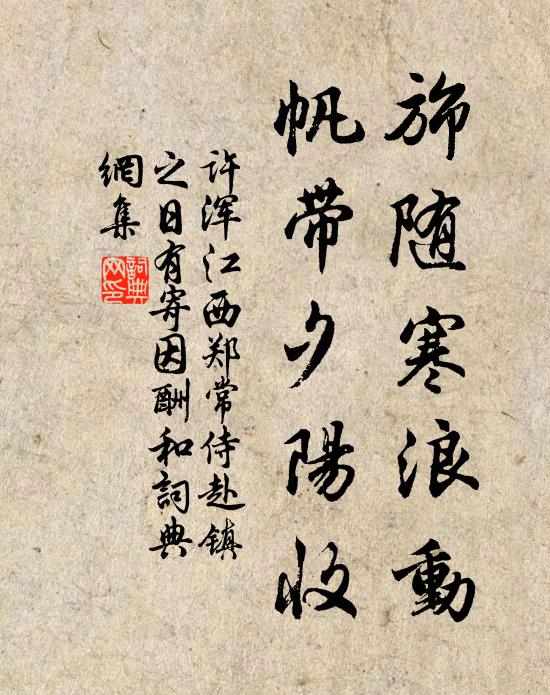 旆随寒浪動
帆带夕陽收
许浑江西郑常侍赴镇
之日有寄因酬和詞典
網集
詞典网印